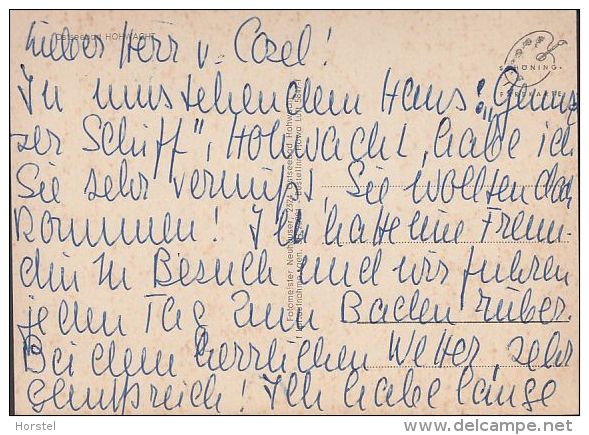 Ostseebad HOHWACHT
Lieber Herr v. Cosel!
SCHÖNING
FARBKARTE
In umstehendem Haus: „Genuese
ser Schiff", Hohwacht, habe ich
Sie sehr vermißt, Sie wollten doch
kommen! Ich hatte eine Freun-
din zu Besuch und wir fuhren
jeden Tag zum Baden rüber.
Bei dem herrlichen Wetter, sehr
genußreich! Ich habe lange
Fotomeister Neuhauser, 2324 Ostseebad Hohwacht
Horstel
www.delcampe.net